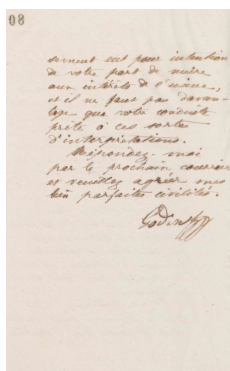 80
sement eut pour intention
de votre part de nuire
aux intérêts de l'usine,
et il ne faut pas davan-
tage que votre conduite
prête à ces sortes
d'interprétations.
Répondez-moi
par le prochain courrier
et veuillez agréer mes
bien parfaites civilités.
Godin